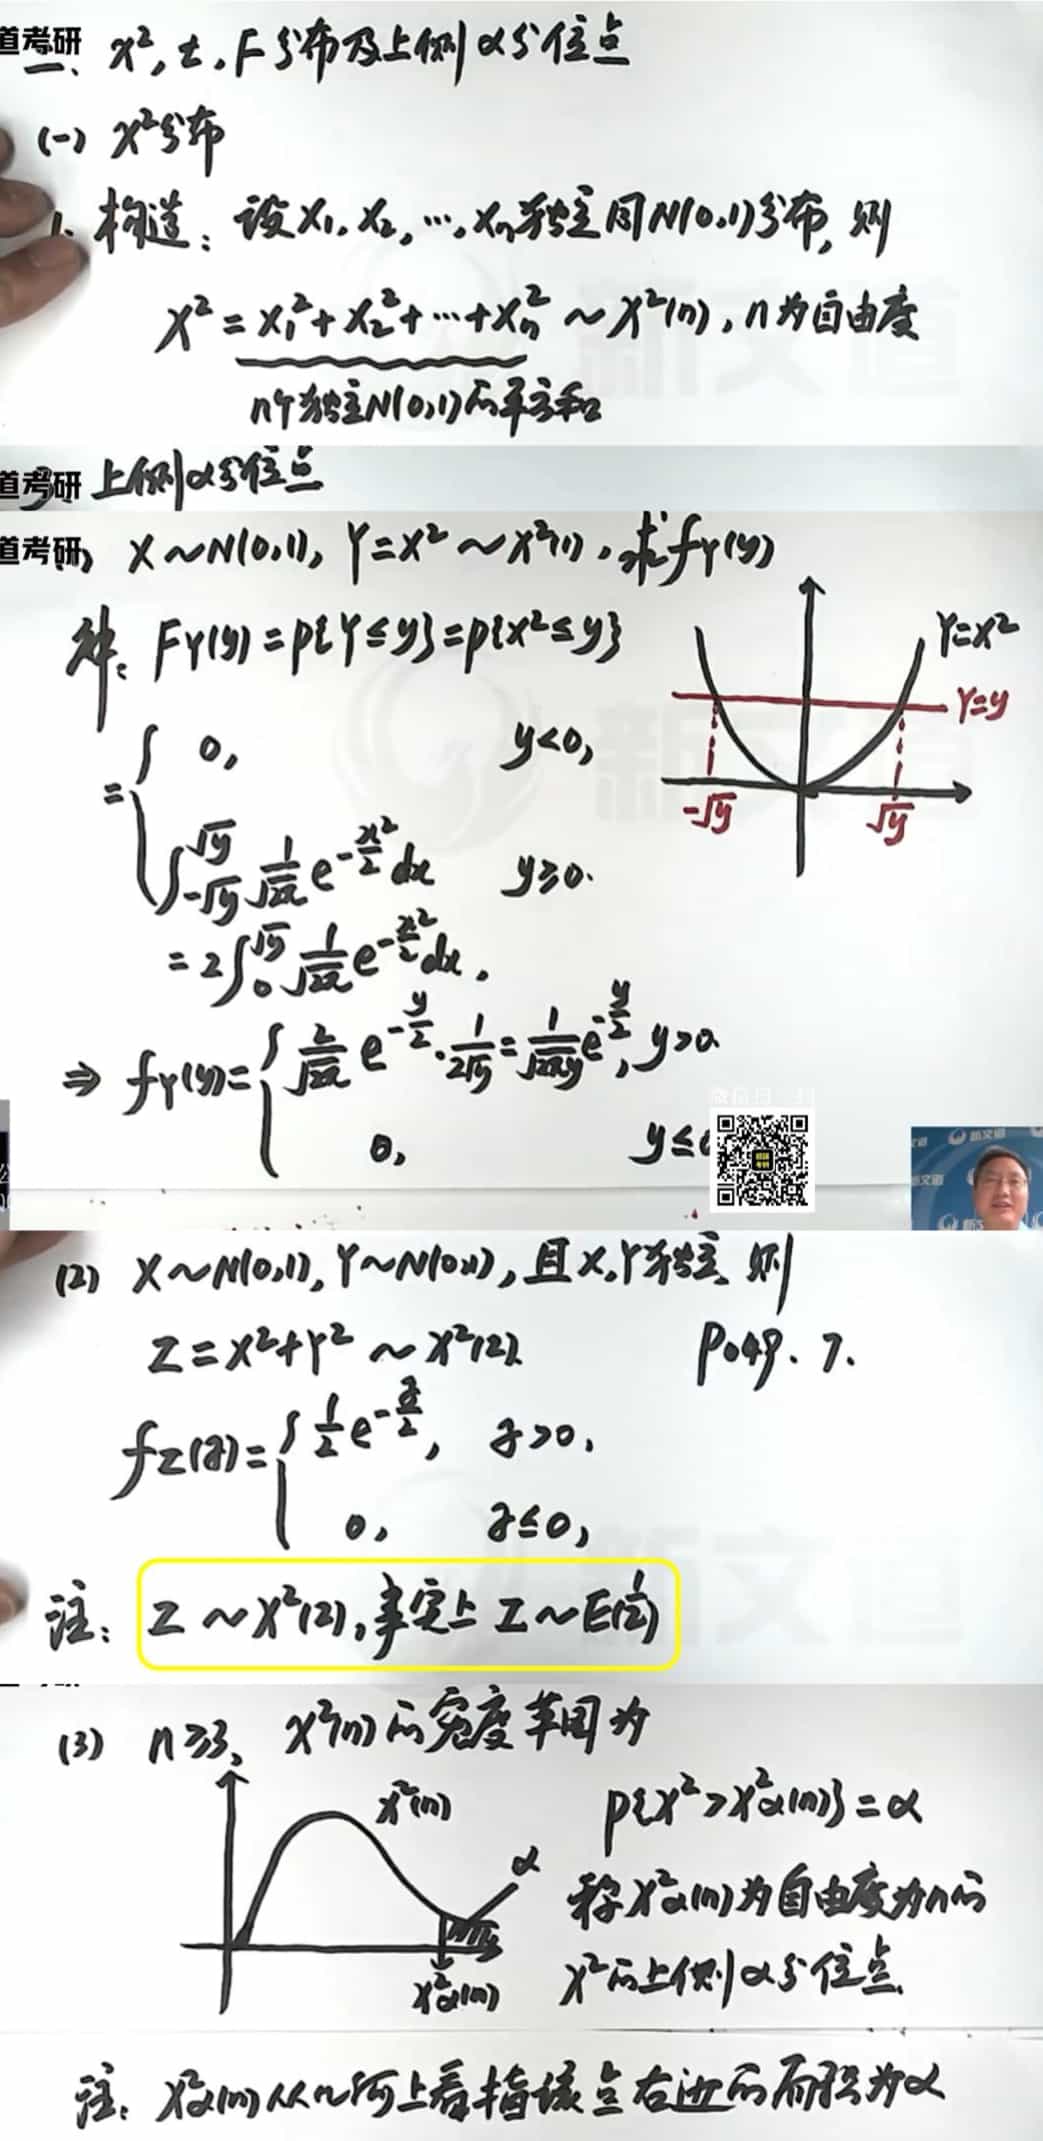 道考研
二、χ², t, F分布及上侧α分位点
(一) χ²分布
1. 构造：设X₁, X₂, …, Xₙ独立同N(0,1)分布, 则
χ² = X₁² + X₂² + … + Xₙ² ~ χ²(n), n为自由度
n个独立N(0,1)的平方和
道考研
3. 上侧α分位点
道考研
X~N(0,1), Y=X²~χ²(1), 求f_Y(y)
解: F_Y(y) = P{Y≤y} = P{X²≤y}
= { 0, y<0,
∫_{-√y}^{√y} 1/√(2π) e^{-x²/2} dx y≥0.
= 2∫_0^{√y} 1/√(2π) e^{-x²/2} dx.
⇒ f_Y(y) = { 2/√(2π) e^{-y/2} · 1/(2√y) = 1/√(2πy) e^{-y/2}, y>0
0, y≤0
Y=X²
Y=y
-√y
√y
新文道
(2) X~N(0,1), Y~N(0,1), 且X, Y独立, 则
Z = X²+Y² ~ χ²(2).
P049. 7.
f_Z(z) = { 1/2 e^{-z/2}, z>0,
0, z≤0,
注: Z~χ²(2), 事实上 Z~E(1/2)
(3) n≥3, χ²(n)的宽度草图为
χ²(n)
α
χ²_α(n)
P{χ²>χ²_α(n)} = α
称χ²_α(n)为自由度为n的
χ²的上侧α分位点.
注: χ²_α(n)从几何上看指该点右边的面积为α